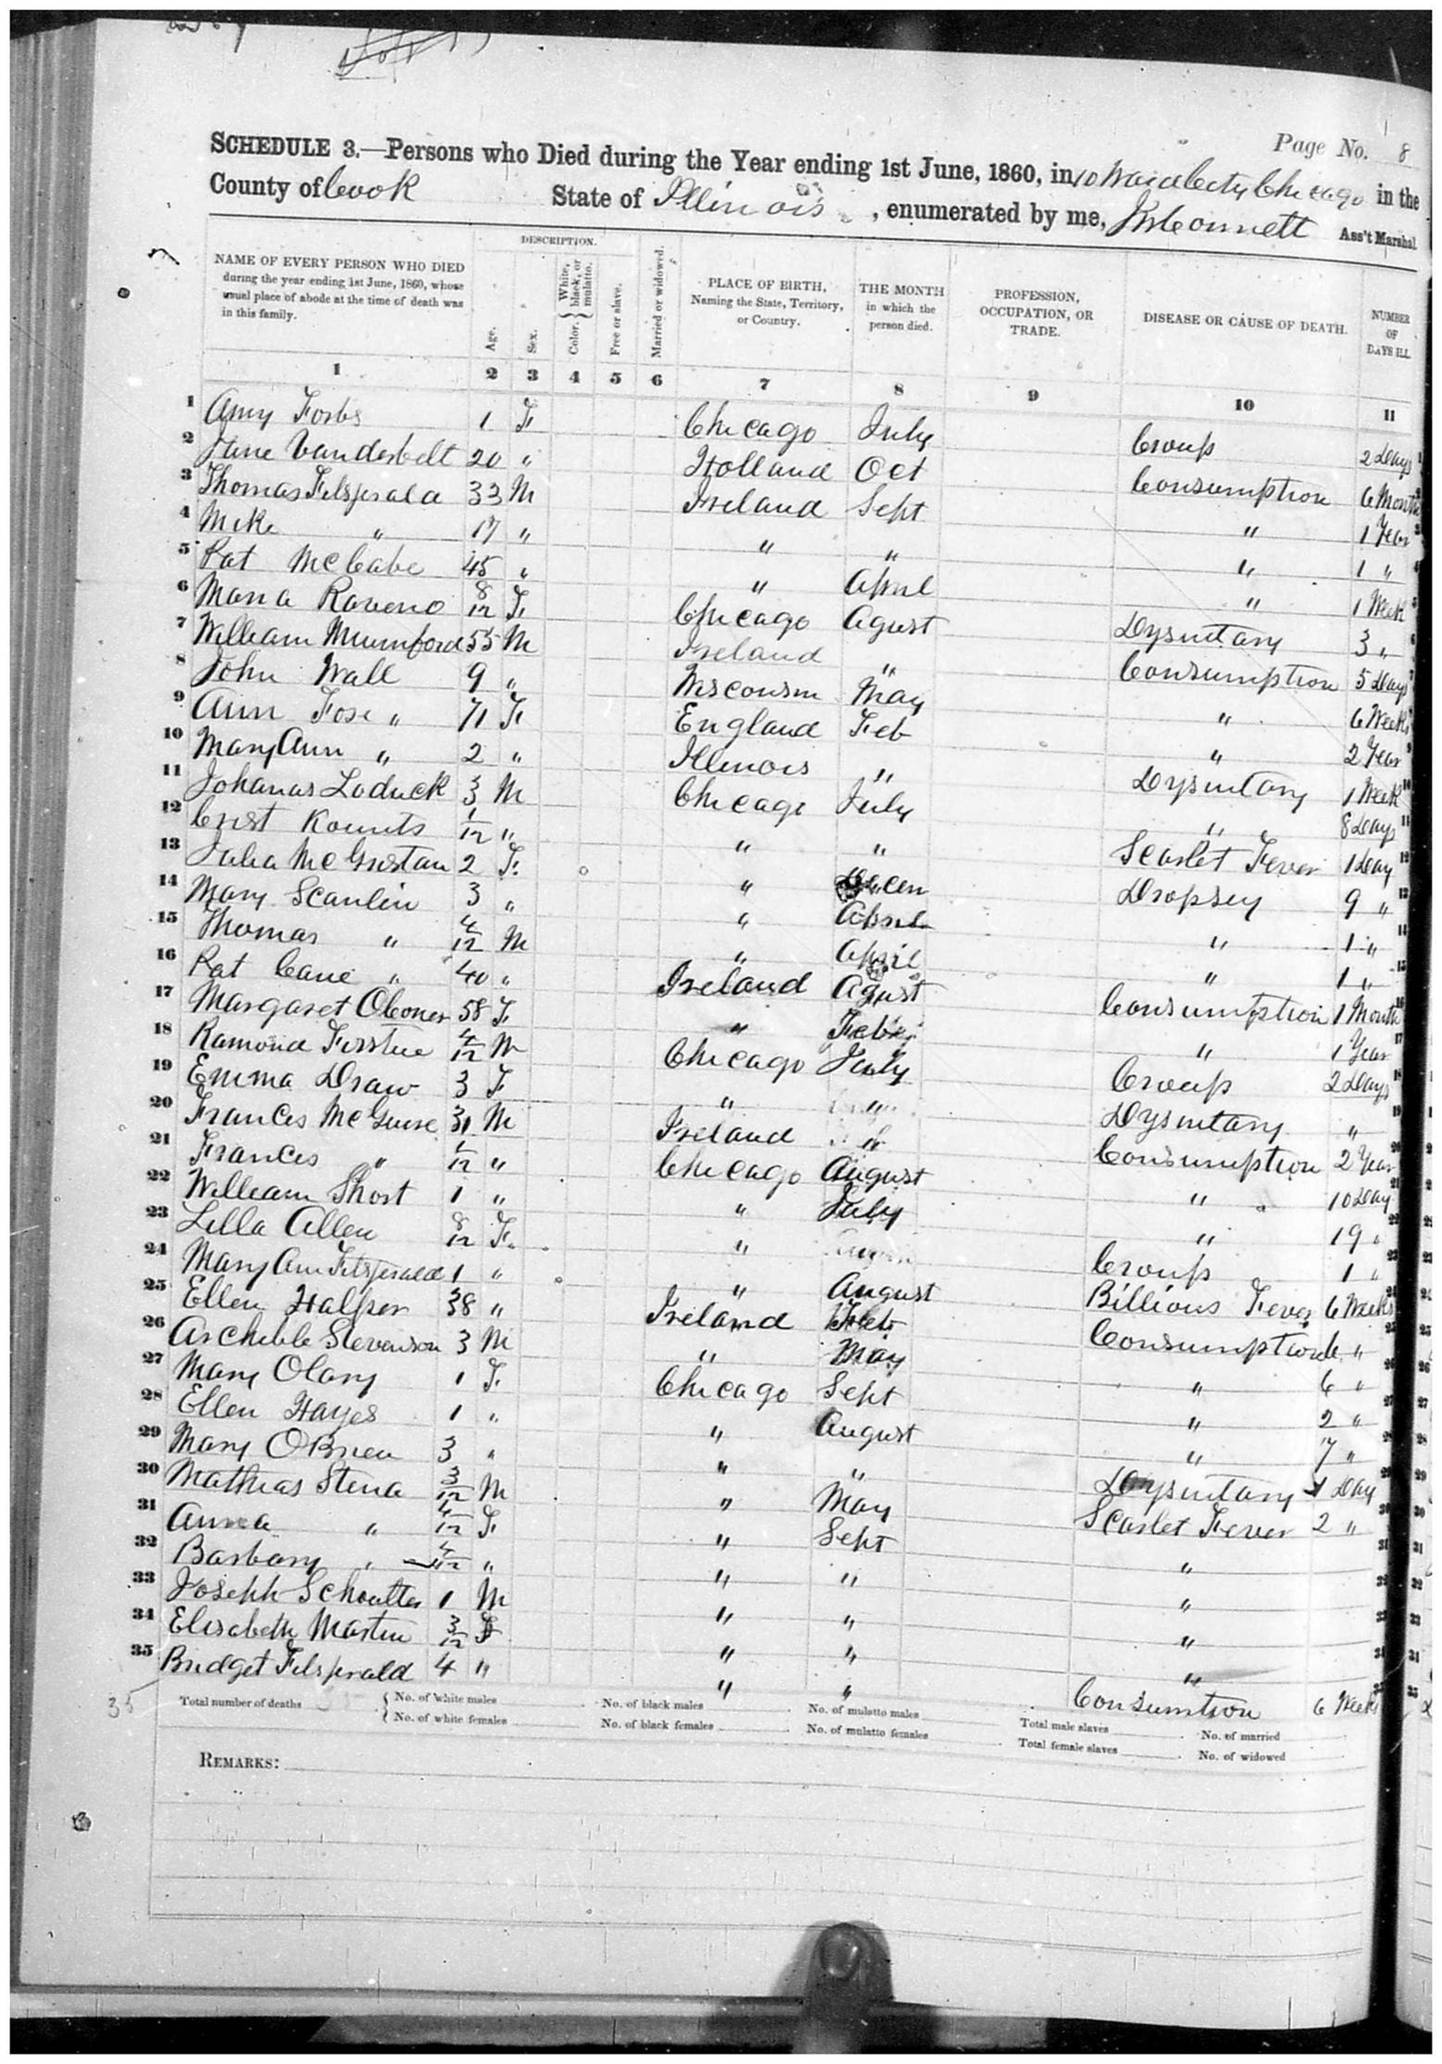 Page No. 8
SCHEDULE 3.—Persons who Died during the Year ending 1st June, 1860, in 10 Ward City Chicago in the
County of Cook State of Illinois, enumerated by me, Ass't Marshal
DESCRIPTION.
NAME OF EVERY PERSON WHO DIED during the year ending 1st June, 1860, whose usual place of abode at the time of death was in this family.
Age. Sex. Color, { White, black, or mulatto. Free or slave. Married or widowed.
PLACE OF BIRTH, Naming the State, Territory, or Country.
THE MONTH in which the person died.
PROFESSION, OCCUPATION, OR TRADE.
DISEASE OR CAUSE OF DEATH.
NUMBER OF DAYS ILL.
1 2 3 4 5 6 7 8 9 10 11
1 Amy Forbs 1 F Chicago July Croup 2 Days
2 Jane Vanderbelt 20 " Holland Oct Consumption 6 Month
3 Thomas Fitsgerald 33 M Ireland Sept " 1 Year
4 Mike " 17 " " " " 1 "
5 Pat McCabe 45 " " April " 1 Week
6 Maria 8/12 F Chicago Agust Dysintary 3 "
7 William Mumford 55 M Ireland " Consumption 5 Days
8 John Wall 9 " Wisconsin May " 6 Weeks
9 Ann Fose " 71 F England Feb " 2 Year
10 Mary Ann " 2 " Illinois " Dysintary 1 Week
11 Johanas Loduck 3 M Chicago July " 8 Days
12 Crist Kounts 1/12 " " " Scarlet Fever 1 Day
13 Julia 2 F " Decem Dropsey 9 "
14 Mary Scanlin 3 " " April " 1 "
15 Thomas " 4/12 M " April " 1 "
16 Pat Cane " 40 " Ireland Agust Consumption 1 Month
17 Margaret Oconer 58 F " Feb " 1 Year
18 Ramond 4/12 M Chicago July Croup 2 Days
19 Emma Draw 3 F " " Dysintary "
20 Frances McGuire 31 M Ireland Consumption 2 Year
21 Frances " /12 " Chicago August " 10 Day
22 William Short 1 " " July " 19 "
23 Lilla Allen 8/12 F " Croup 1 "
24 Mary Ann Fitsgerald 1 " " August Billious Fever 6 Weeks
25 Ellen Halper 38 " Ireland Feb Consumption 6 "
26 Archible Stevenson 3 M " May " 6 "
27 Mary Olary 1 F Chicago Sept " 2 "
28 Ellen Hayes 1 " " August " 7 "
29 Mary OBrien 3 " " " Dysintary 1 Day
30 Mathias Stena 3/12 M " May Scarlet Fever 2 "
31 Anna " 4/12 F " Sept "
32 Barbary " 4/12 " " " "
33 Joseph Schoulter 1 M " " "
34 Elisabeth Martin 3/12 F " " "
35 Bridget Fitsgerald 4 " " " Consumtion 6 Weeks
35 Total number of deaths { No. of white males No. of black males No. of mulatto males Total male slaves No. of married
{ No. of white females No. of black females No. of mulatto females Total female slaves No. of widowed
REMARKS: